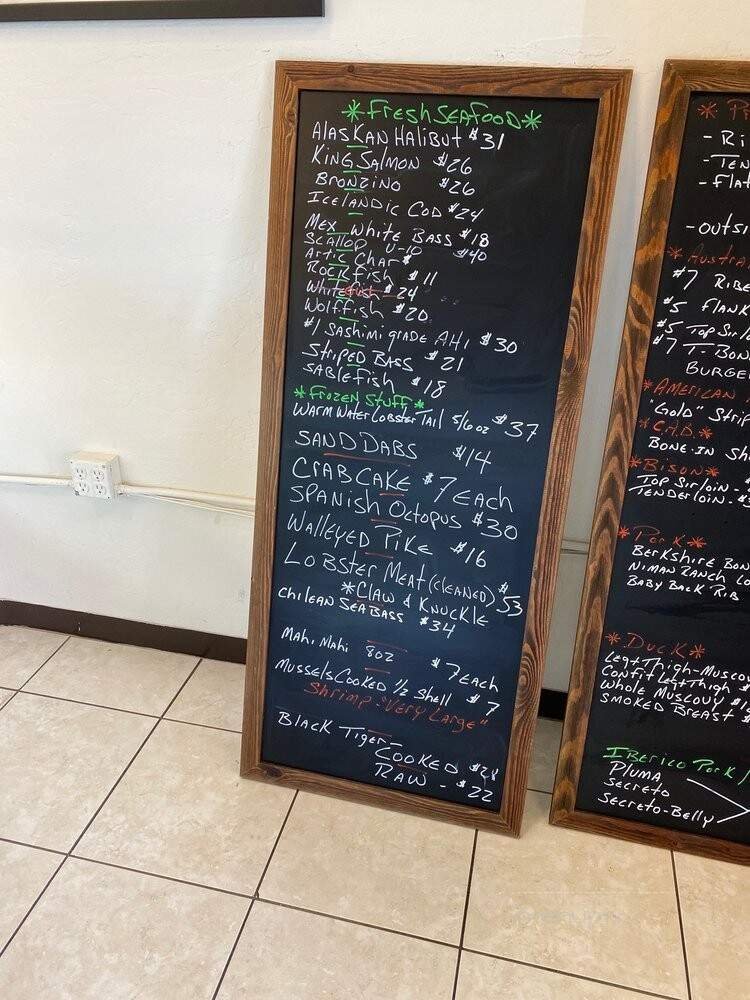 *Fresh Seafood*
Alaskan Halibut $31
King Salmon $26
Bronzino $26
Icelandic Cod $24
Mex White Bass $18
Scallop U-10 $40
Artic Char $
Rockfish $11
Whitefish $24
Wolffish $20
#1 Sashimi grade AHi $30
Striped Bass $21
Sablefish $18
*Frozen Stuff*
Warm Water Lobster Tail 5/6oz $37
Sand Dabs $14
Crab Cake $7 Each
Spanish Octopus $30
Walleyed Pike $16
Lobster Meat (cleaned) $53
*Claw & Knuckle
Chilean Sea Bass $34
Mahi Mahi 8oz $7 Each
Mussels Cooked 1/2 Shell $7
Shrimp "Very Large"
Black Tiger-
Cooked $28
Raw - $22
- Ri
- Ten
- Flat
- outsi
* Austra
#7 Ribe
#5 Flank
#5 Top Sirlo
#7 T-Bon
Burge
*American
"Gold" Strip
*C.A.B.*
Bone-in Sh
*Bison*
Top Sirloin -
Tenderloin - $
*Pork*
Berkshire Bon
Niman Ranch Lo
Baby Back Rib
*Duck*
Leg+Thigh-Muscov
Confit Leg+Thigh
Whole Muscovy
Smoked Breast
Iberico Pork
Pluma
Secreto
Secreto-Belly